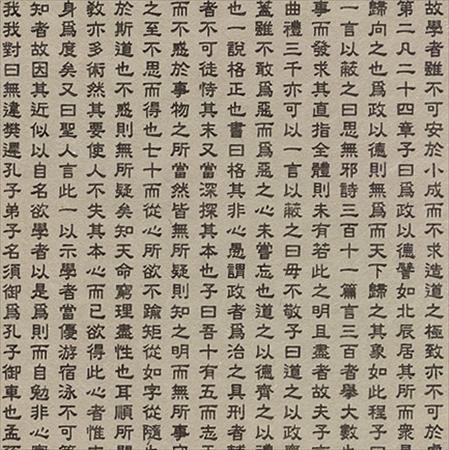 故學者雖不可安於小成而不求造道之極致亦不可於
第二凡二十四章子曰爲政以德譬如北辰居其所而衆星
歸向之也爲政以德則無爲而天下歸之其象如此程子曰
一言以蔽之曰思無邪詩三百十一篇言三百者舉大數也
事而發求其直指全體則未有若此之明且盡者故夫子言
曲禮三千亦可以一言以蔽之曰毋不敬子曰道之以政齊
蓋雖不敢爲惡而爲惡之心未嘗忘也道之以德齊之以禮
也一說格正也書曰格其非心愚謂政者爲治之具刑者輔
者不可徒恃其末又當深探其本也子曰吾十有五而志于
而不惑於事物之所當然皆無所疑則知之明而無所事守
之至不思而得也七十而從心所欲不踰矩從如字從隨也
於斯道也不惑則無所疑矣知天命窮理盡性也耳順所聞
敎亦多術然其要使人不失其本心而已欲得此心者惟志
身爲度矣又曰聖人言此一以示學者當優游宿泳不可
知者故因其近似以自名欲學者以是爲則而自勉非心實
我我對曰無違樊遲孔子弟子名須御爲孔子御車也孟孫